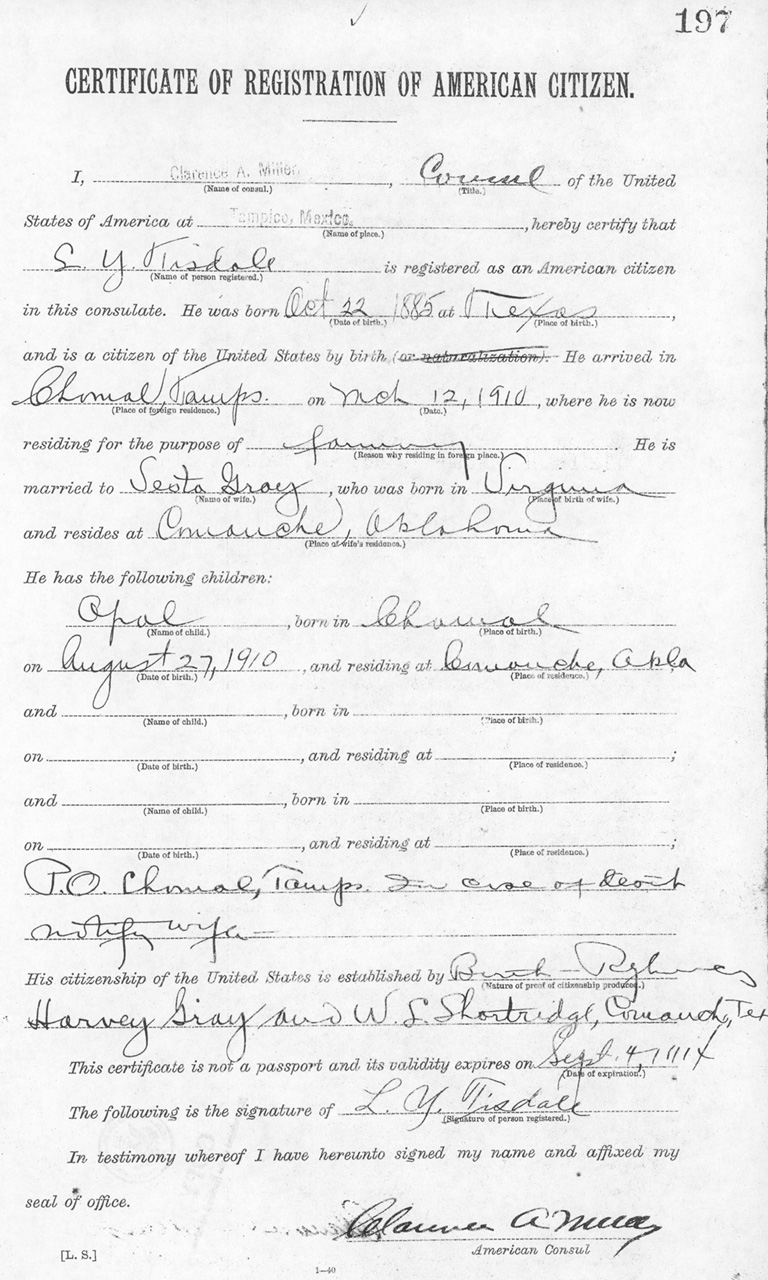 197
CERTIFICATE OF REGISTRATION OF AMERICAN CITIZEN.
I, Clarence A. Miller, Consul of the United
(Name of consul.) (Title.)
States of America at Tampico, Mexico, hereby certify that
(Name of place.)
L. Y. Tisdale is registered as an American citizen
(Name of person registered.)
in this consulate. He was born Oct 22 1885 at Texas,
(Date of birth.) (Place of birth.)
and is a citizen of the United States by birth (or naturalization). He arrived in
Chomal, Tamps. on Mch 12, 1910, where he is now
(Place of foreign residence.) (Date.)
residing for the purpose of farming. He is
(Reason why residing in foreign place.)
married to Gray, who was born in Virginia
(Name of wife.) (Place of birth of wife.)
and resides at Comanche, Oklahoma
(Place of wife's residence.)
He has the following children:
Opal, born in Chamal
(Name of child.) (Place of birth.)
on August 27, 1910, and residing at Comanche, Okla
(Date of birth.) (Place of residence.)
and , born in
(Name of child.) (Place of birth.)
on , and residing at ;
(Date of birth.) (Place of residence.)
and , born in
(Name of child.) (Place of birth.)
on , and residing at ;
(Date of birth.) (Place of residence.)
P.O. Chomal, Tamps. In case of death
notify wife
His citizenship of the United States is established by Birth -
(Nature of proof of citizenship produced.)
Harvey Gray and W. L. Shortridge, Comanche, Tex
This certificate is not a passport and its validity expires on Sept. 4,
(Date of expiration.)
The following is the signature of L. Y. Tisdale
(Signature of person registered.)
In testimony whereof I have hereunto signed my name and affixed my
seal of office.
Clarence A Miller
American Consul
[L. S.]
1—40